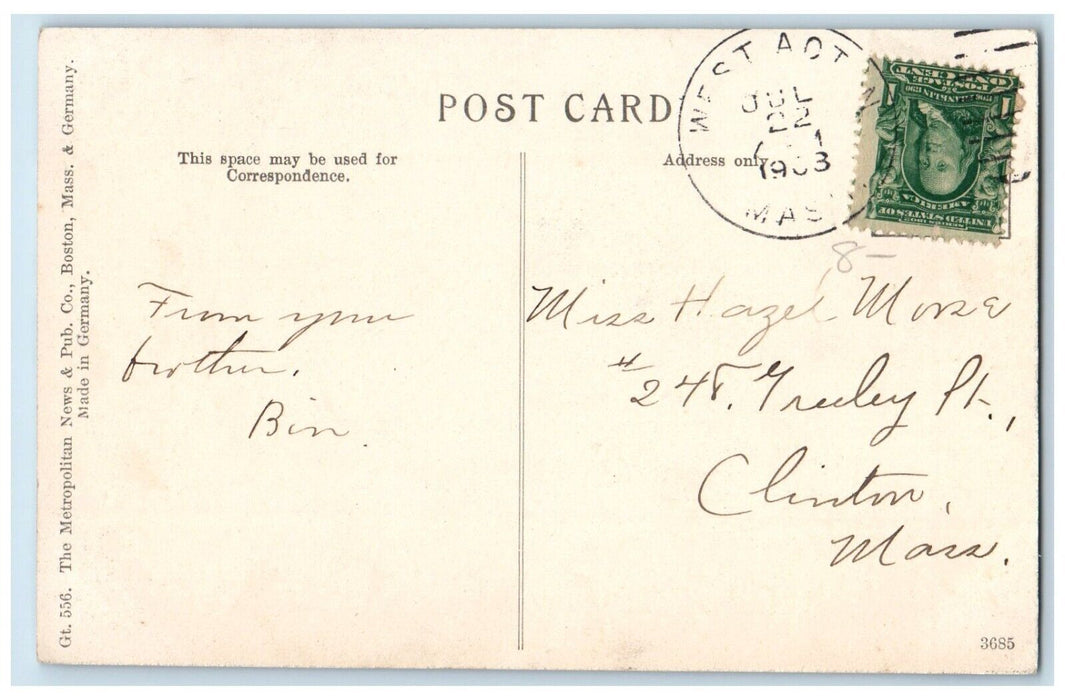 POST CARD
This space may be used for
Correspondence.
Address only.
WEST ACTON
JUL
22
MASS
8-
From your
brother.
Bin.
Miss Hazel Morse
# 248. Greeley St.,
Clinton,
Mass.
Gt. 556. The Metropolitan News & Pub. Co., Boston, Mass. & Germany.
Made in Germany.
3685
SERIES 1902
UNITED STATES OF
AMERICA
FRANKLIN
POSTAGE
ONE CENT
1
1